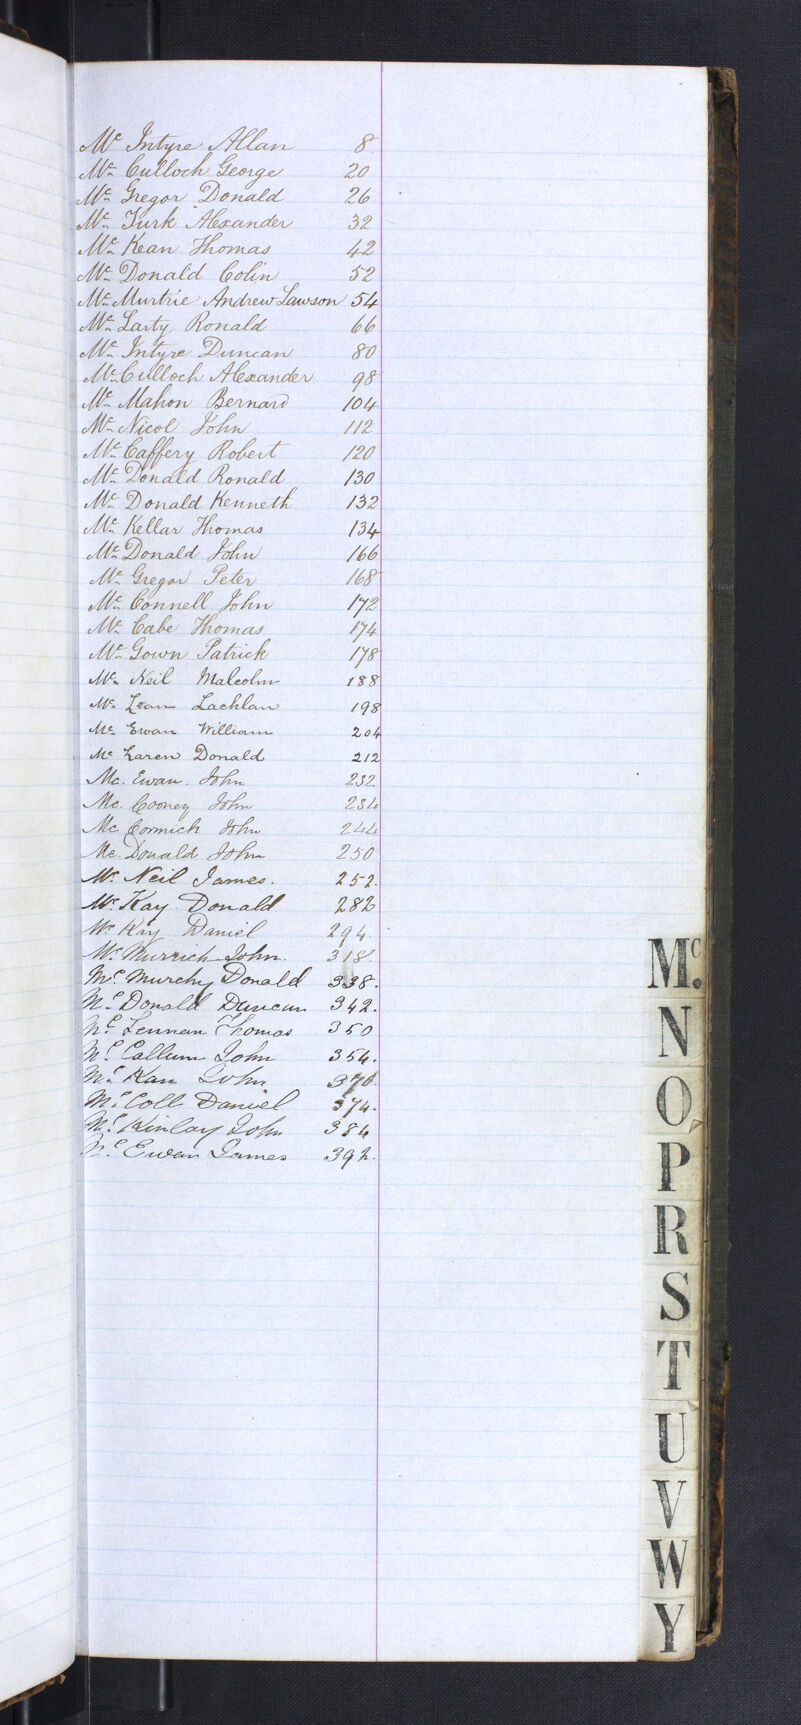 Mc Intyre Allan 8
Mc Culloch George 20
Mc Gregor Donald 26
Mc Turk Alexander 32
Mc Kean Thomas 42
Mc Donald Colin 52
Mc Murtrie Andrew Lawson 54
Mc Larty Ronald 66
Mc Intyre Duncan 80
Mc Culloch Alexander 98
Mc Mahon Bernard 104
Mc Nicol John 112
Mc Caffery Robert 120
Mc Donald Ronald 130
Mc Donald Kenneth 132
Mc Kellar Thomas 134
Mc Donald John 166
Mc Gregor Peter 168
Mc Connell John 172
Mc Cabe Thomas 174
Mc Gown Patrick 178
Mc Neil Malcolm 188
Mc Lean Lachlan 198
Mc Ewan William 204
Mc Laren Donald 212
Mc. Ewan. John 232
Mc. Cooney John 234
Mc Cormick John 244
Mc. Donald John 250
Mc Neil James. 252.
Mc Kay Donald 282
Mc Kay Daniel 294.
Mc Murrich John. 318.
Mc Murchy Donald 338.
Mc Donald Duncan 342.
Mc Lennan Thomas 350
Mc Callum John 354.
Mc Kan John
Mc Coll Daniel 374.
Mc Kinlay John 384
Mc Ewan James 392.
Mc.
N
O
P
R
S
T
U
V
W
Y